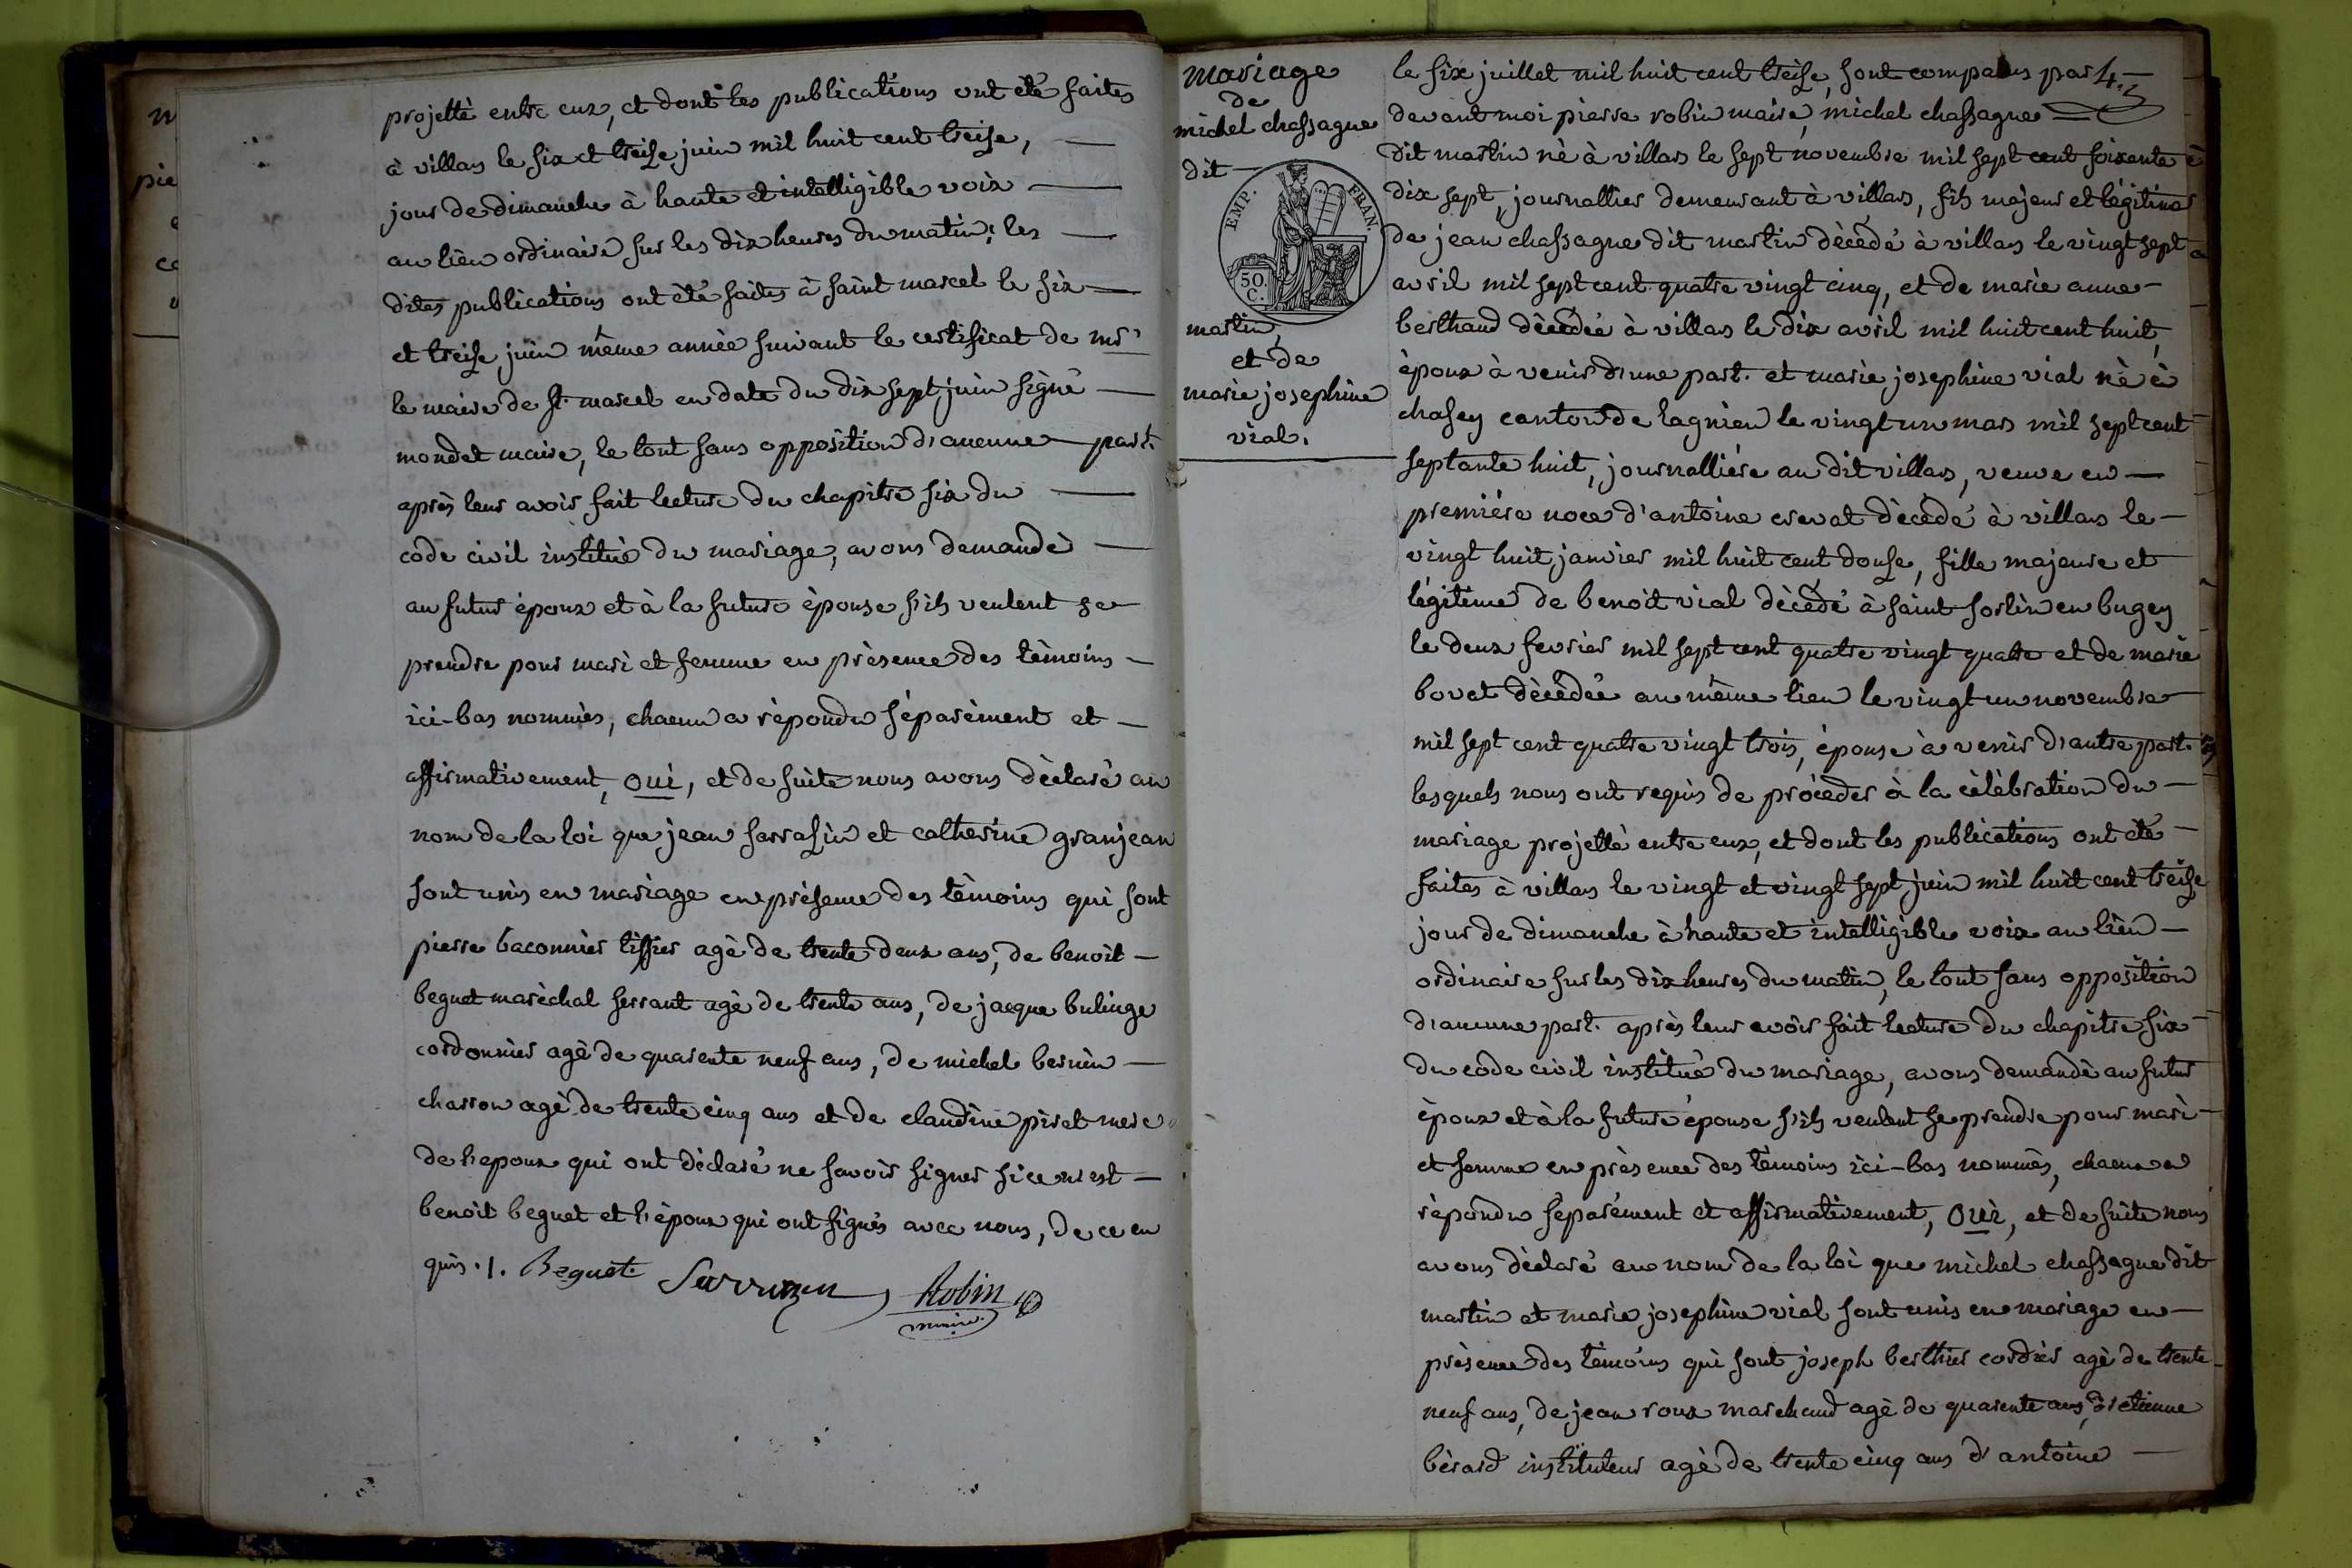 projetté entre eux, et dont les publications ont été faites
à villars le six et treise juin mil huit cent treise,
jour de dimanche à haute et intelligible voix
au lieu ordinaire sur les dix heures du matin; les
dites publications ont été faites à saint marcel le six
et treise juin même année suivant le certificat de mr
le maire de St. marcel en date du dix sept juin signé
mondet maire, le tout sans opposition d'aucune part.
après leur avoir fait lecture du chapitre six du
code civil institué du mariage, avons demandé
au futur époux et à la future épouse s'ils veulent se
prendre pour mari et femme en présence des témoins
ici-bas nommés, chacun a répondu séparément et
affirmativement, oui, et de suite nous avons déclaré au
nom de la loi que jean sarrasin et catherine granjean
sont unis en mariage en présence des témoins qui sont
pierre baconnier tissier agé de trente deux ans, de benoit
beguet maréchal ferrant agé de trente ans, de jacque bulinge
cordonnier agé de quarente neuf ans, de michel bernin
charron agé de trente cinq ans et de claudine piret mere
de l'epoux qui ont déclaré ne savoir signer si ce n'est
benoit beguet et l'époux qui ont signés avec nous, de ce en
quis. /. Beguet Sarrazin Robin
maire
mariage
de
michel chassagne
dit
EMP. FRAN.
50.
C.
martin,
et de
marie josephine
vial.
le six juillet mil huit cent treise, sont comparus par
4.
devant moi pierre robin maire, michel chassagne
dit martin né à villars le sept novembre mil sept cent soixante è
dix sept, journallier demeurant à villars, fils majeur et légitime
de jean chassagne dit martin décédé à villars le vingt sept
avril mil sept cent quatre vingt cinq, et de marie anne
berthaud décédée à villars le dix avril mil huit cent huit,
époux à venir d'une part. et marie josephine vial né à
chasey canton de lagnieu le vingt un mars mil sept cent
septante huit, journallière au dit villars, veuve en
première noce d'antoine crevat décédé à villars le
vingt huit janvier mil huit cent douse, fille majeure et
légitime de benoit vial décédé à saint sorlin en bugey
le deux fevrier mil sept cent quatre vingt quatre et de marie
bovet décédée au même lieu le vingt un novembre
mil sept cent quatre vingt trois, épouse à venir d'autre part.
lesquels nous ont requis de procéder à la célébration du
mariage projetté entre eux, et dont les publications ont été
faites à villars le vingt et vingt sept juin mil huit cent treise
jour de dimanche à haute et intelligible voix au lieu
ordinaire sur les dix heures du matin, le tout sans opposition
d'aucune part. après leur avoir fait lecture du chapitre six
du code civil institué du mariage, avons demandé au futur
époux et à la future épouse s'ils veulent se prendre pour mari
et femme en présence des témoins ici-bas nommés, chacun a
répondu séparément et affirmativement, oui, et de suite nous
avons déclaré au nom de la loi que michel chassagne dit
martin et marie josephine vial sont unis en mariage en
présence des témoins qui sont joseph berthier cordier agé de trente
neuf ans, de jean roux marchand agé de quarente ans, d'etienne
bérard instituteur agé de trente cinq ans d'antoine